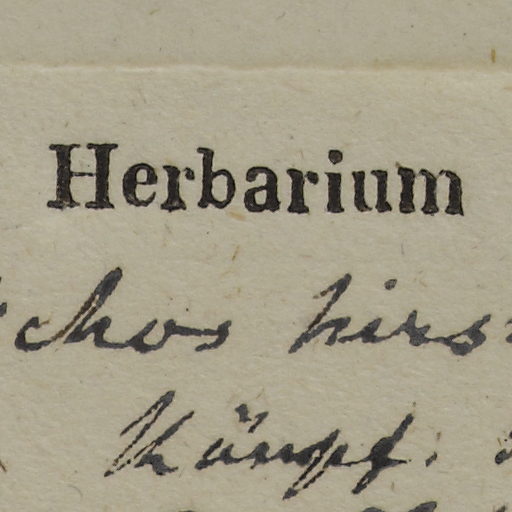 Herbarium
chos hirs
Kämpf.